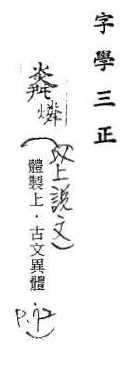 字學三正
㷠
燐
(以上說文)
體製上·古文異體
P.12